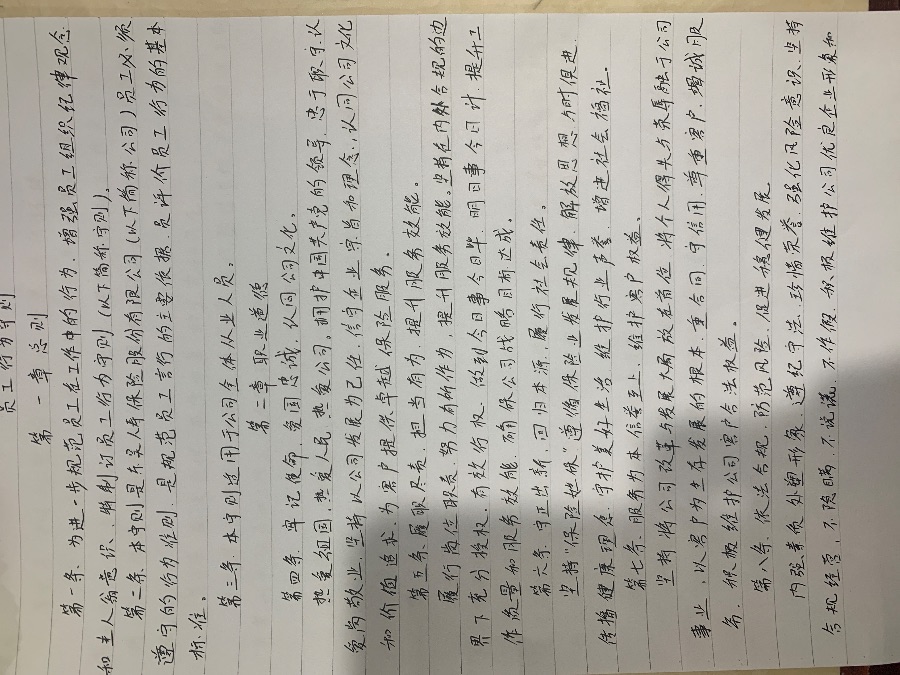 员工行为守则
第一章 总则
第一条、为进一步规范员工在工作中的行为、增强员工组织纪律观念
和主人翁意识、特制订员工行为守则(以下简称守则)。
第二条、本守则是东吴人寿保险股份有限公司(以下简称公司)员工必须
遵守的行为准则 是规范员工言行的主要依据 员评价员工行为的基本
标准。
第三条 本守则适用于公司全体从业人员。
第二章 职业道德
第四条 牢记使命、爱国忠诚、认同公司文化。
热爱祖国、热爱人民、热爱公司。拥护中国共产党的领导、忠于职守、认
爱岗敬业、坚持以公司发展为己任、信守企业宗旨和理念、认同公司文化
和价值追求、为客户提供卓越保险服务。
第五条、履职尽责、担当有为、提升服务效能。
履行岗位职责、努力有所作为、提升服务效能。坚持在内外合规的边
界下充分授权、有效行权、做到今日事今日毕、明日事今日计、提升工
作质量和服务效能、确保公司战略目标达成。
第六条、守正出新、回归本源、履行社会责任。
坚持“保险姓保”遵循保险业发展规律、解放思想、与时俱进、
传播健康理念、守护美好生活、维护行业声誉、增进社会福祉。
第七条、服务为本、信誉至上、维护客户权益。
坚持将公司改革与发展大局放在首位 将个人得失与荣辱融于公司
事业、以客户为生存发展的根本、重合同、守信用、尊重客户、竭诚服
务、积极维护公司客户合法权益。
第八条、依法合规、防范风险、促进稳健发展
内强素质、外塑形象、遵纪守法、珍惜荣誉、强化风险意识、坚持
合规经营、不隐瞒、不说谎、不作假、积极维护公司优良企业形象和